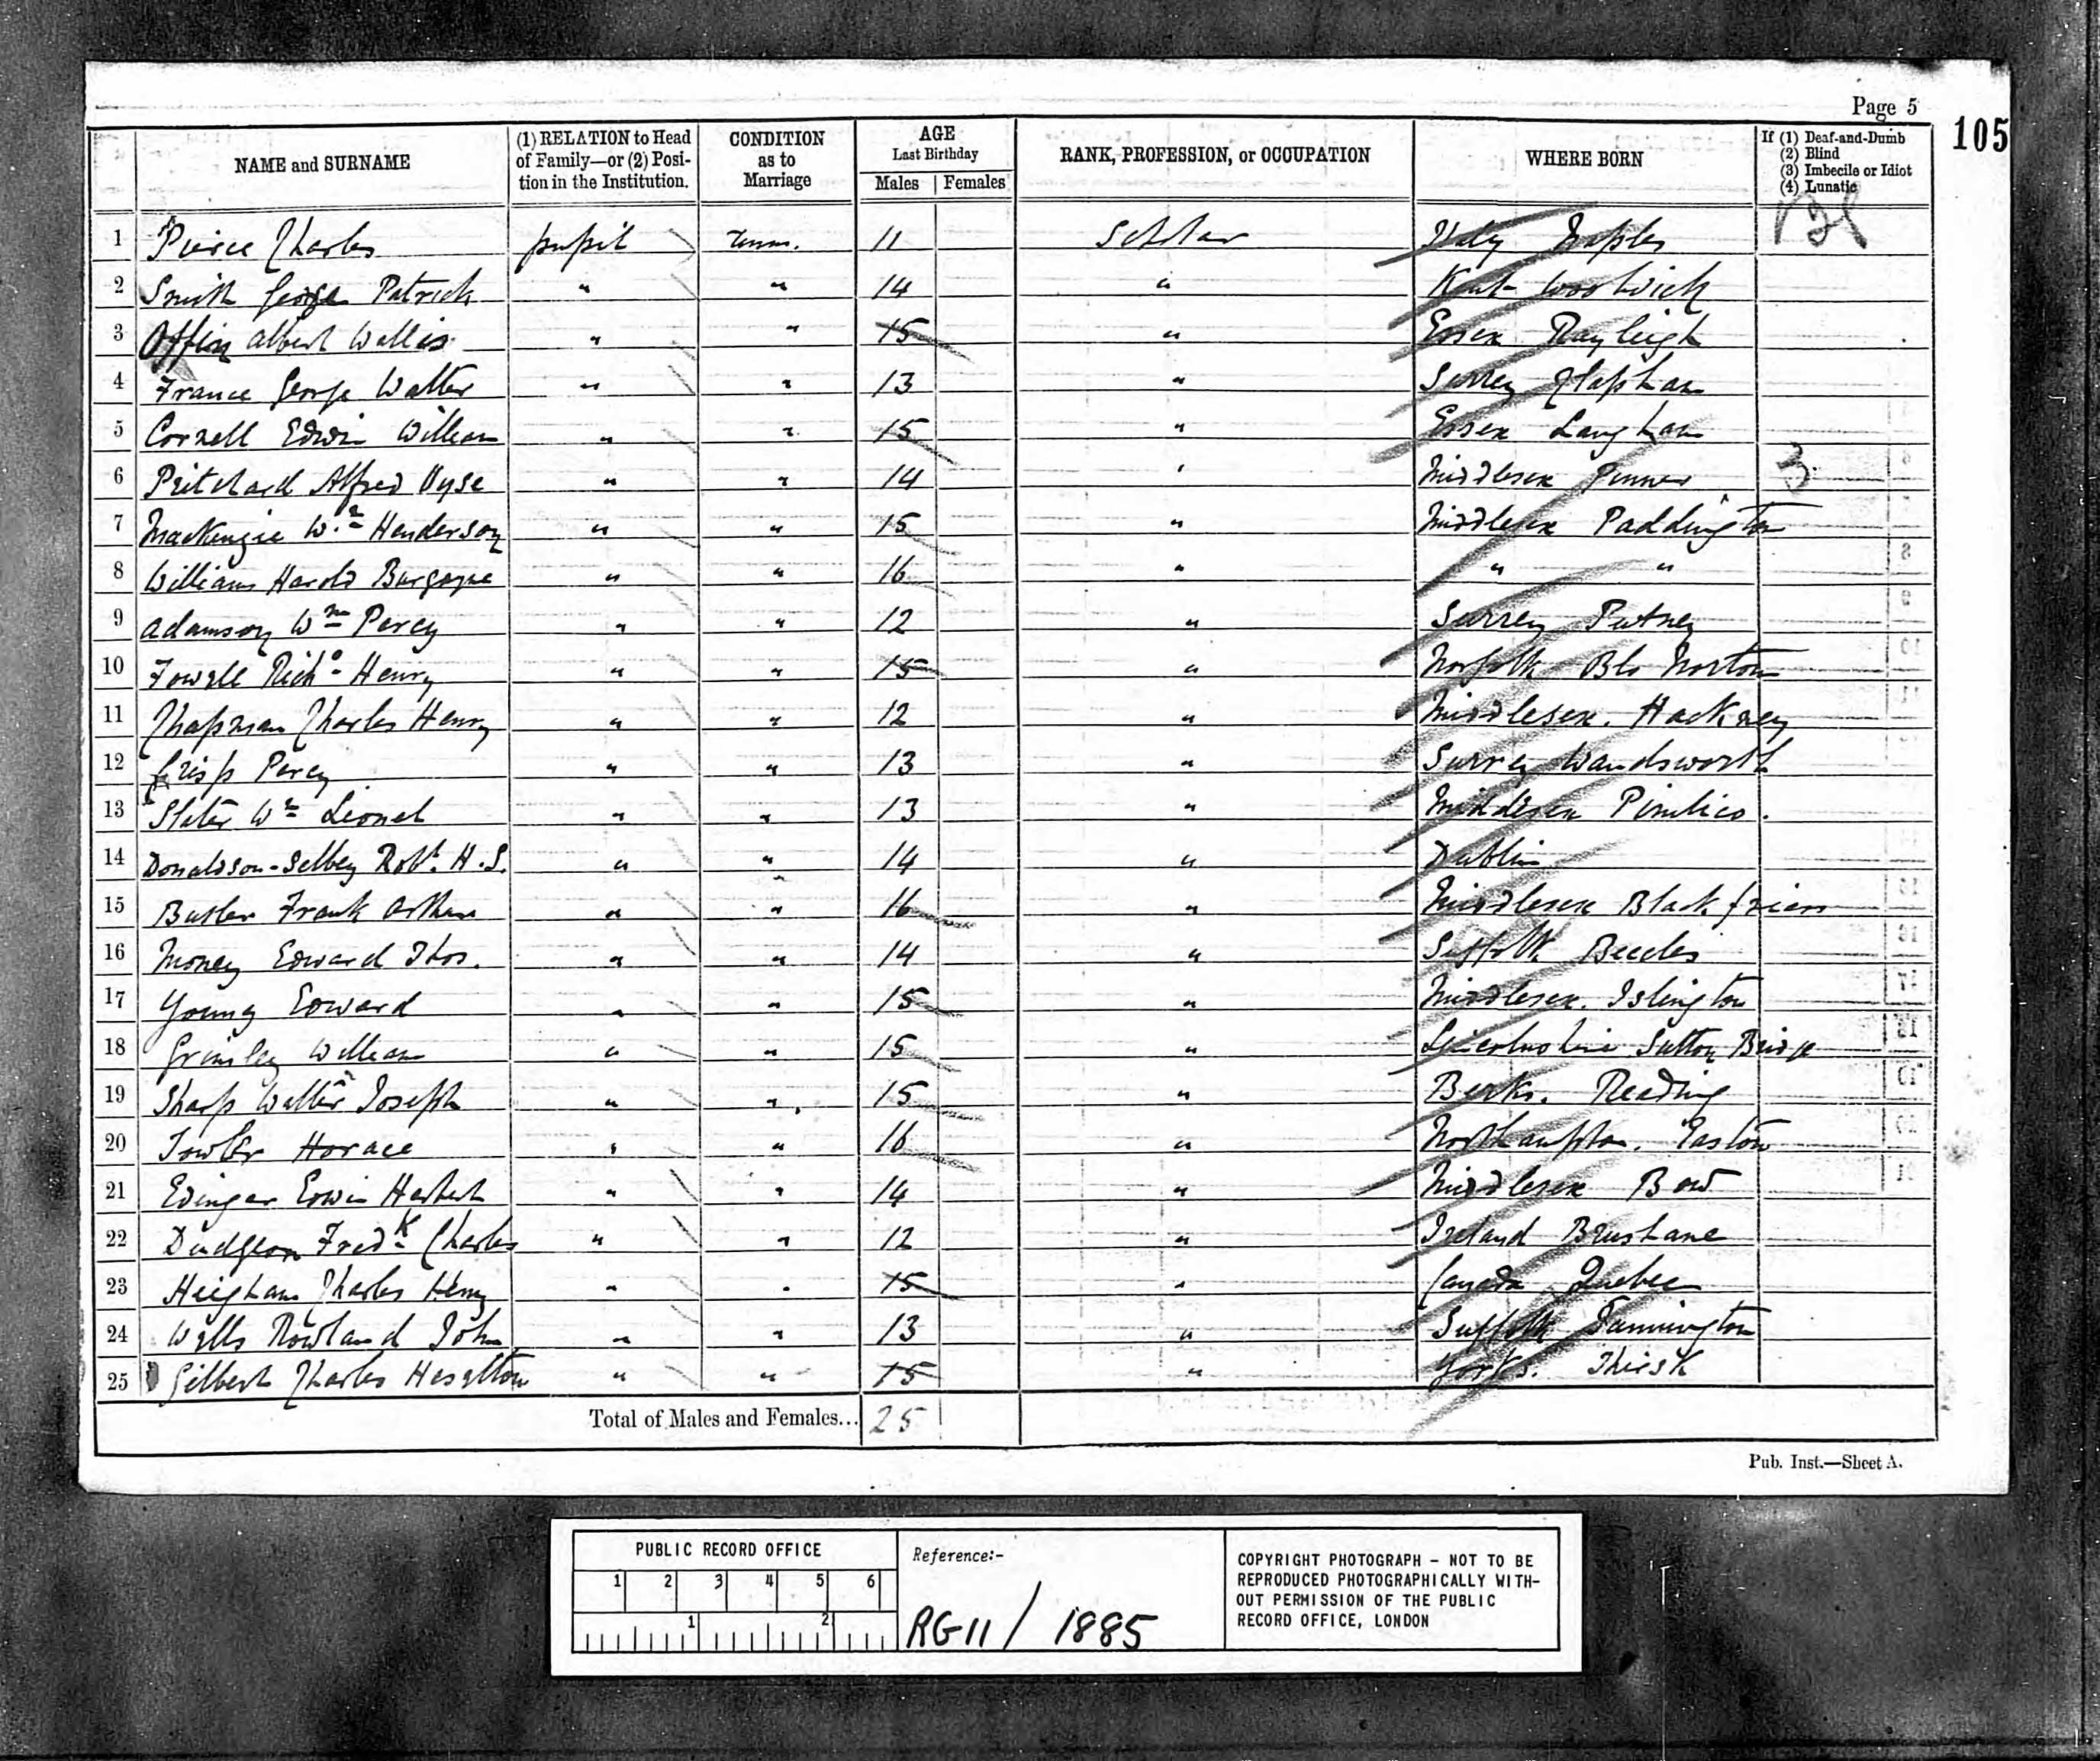 Page 5
105
NAME and SURNAME (1) RELATION to Head of Family—or (2) Position in the Institution. CONDITION as to Marriage AGE Last Birthday Males Females RANK, PROFESSION, or OCCUPATION WHERE BORN If (1) Deaf-and-Dumb (2) Blind (3) Imbecile or Idiot (4) Lunatic
1 Pierce Charles pupil unm. 11 Scholar Italy Naples
2 Smith George Patrick " " 14 " Kent Woolwich
3 Offin Albert Wallis " " 15 " Essex Rayleigh
4 France George Walter " " 13 " Surrey Clapham
5 Cornell Edwin William " " 15 " Essex Langham
6 Pritchard Alfred Vyse " " 14 " Middlesex Pinner 3
7 MacKenzie Wm Henderson " " 15 " Middlesex Paddington
8 Williams Harold Burgoyne " " 16 " " "
9 Adamson Wm Percy " " 12 " Surrey Putney
10 Fowell Richd Henry " " 15 " Norfolk Blo Norton
11 Chapman Charles Henry " " 12 " Middlesex. Hackney
12 Crisp Percy " " 13 " Surrey Wandsworth
13 Slater Wm Lionel " " 13 " Middlesex Pimlico.
14 Donaldson-Selby Robt. H.S. " " 14 " Dublin
15 Butler Frank Arthur " " 16 " Middlesex Blackfriars
16 Money Edward Thos. " " 14 " Suffolk Beccles
17 Young Edward " " 15 " Middlesex. Islington
18 Grimley William " " 15 " Lincolnshire Sutton Bridge
19 Sharp Walter Joseph " " 15 " Berks. Reading
20 Fowler Horace " " 16 " Northampton. Easton
21 Edinger Edwin Herbert " " 14 " Middlesex Bow
22 Dudgeon Fredk Charles " " 12 " Ireland
23 Heigham Charles Henry " " 15 " Canada Quebec
24 Wells Rowland John " " 13 " Suffolk Tannington
25 Gilbert Charles Heselton " " 15 " Yorks. Thirsk
Total of Males and Females... 25
Pub. Inst.—Sheet A.
PUBLIC RECORD OFFICE
1 2 3 4 5 6
1 2
Reference:-
RG11 / 1885
COPYRIGHT PHOTOGRAPH - NOT TO BE
REPRODUCED PHOTOGRAPHICALLY WITH-
OUT PERMISSION OF THE PUBLIC
RECORD OFFICE, LONDON